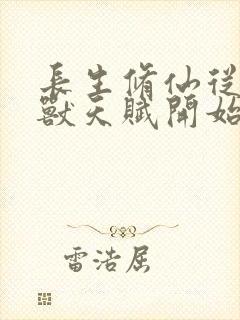 長生脩仙從
獸天賦開始
雷浩屈